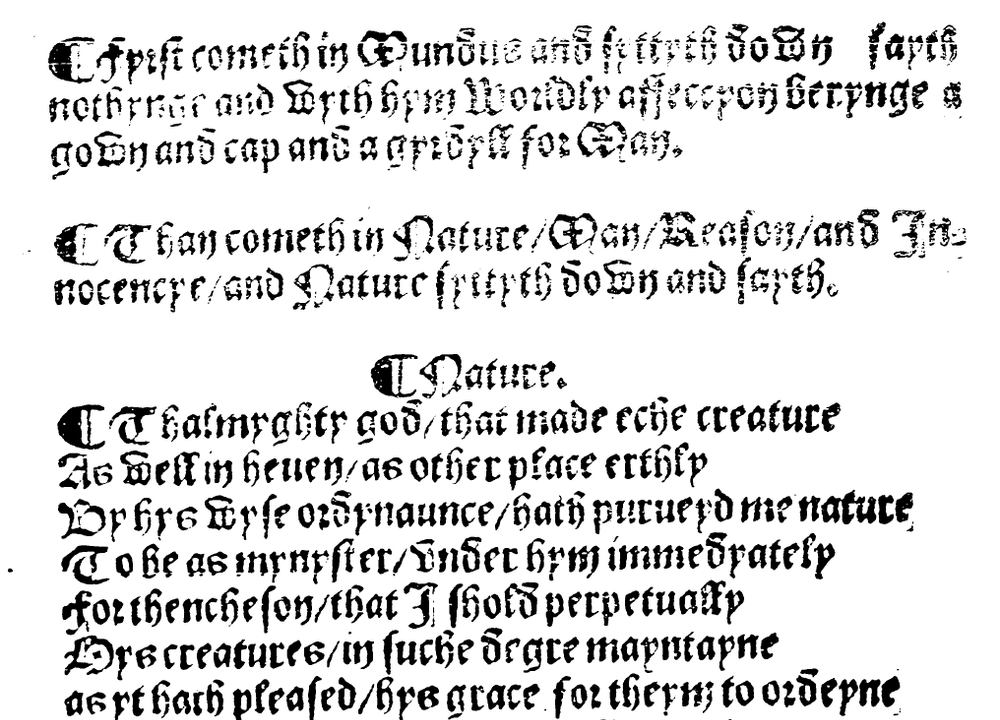 ¶ Fyrst cometh in Mundus and syttyth down sayth
nothynge and wyth hym Worldly affeccyon berynge a
gown and cap and a gyrdyll for Man.
¶ Than cometh in Nature/Man/Reason/and In-
nocencye/and Nature syttyth down and sayth.
¶ Nature.
¶ Thalmyghty god/that made eche creature
As well in heuen/as other place erthly
By hys wyse ordynaunce/hath purueyd me nature
To be as mynyster/vnder hym immedyately
For thencheson/that I shold perpetually
Hys creatures/in suche degre mayntayne
as yt hath pleased/hys grace for theym to ordeyne